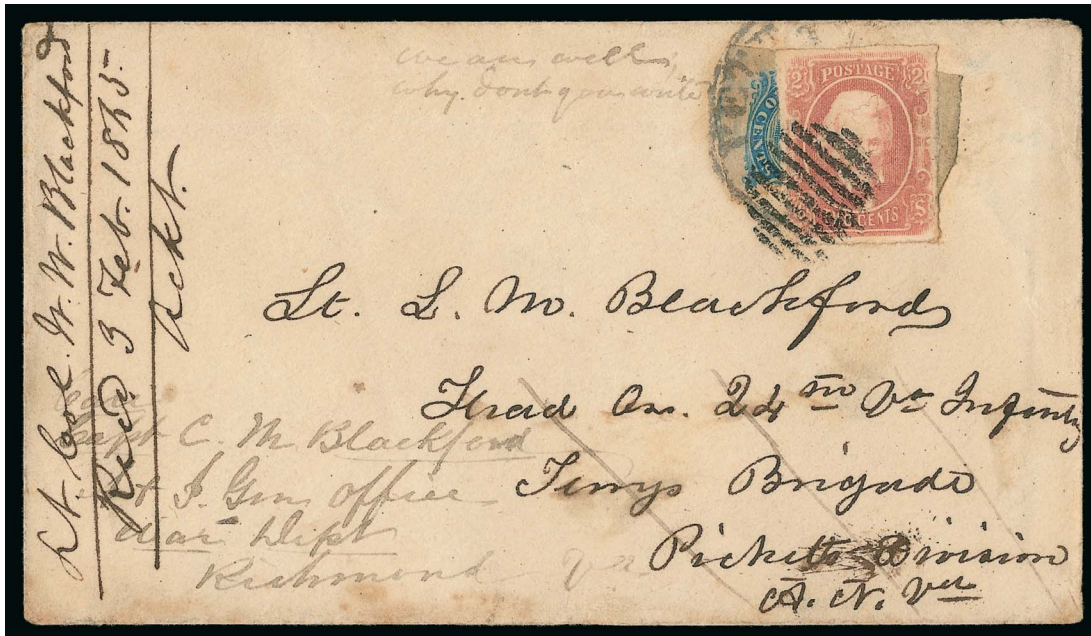 Lt. Col. W. W. Blackford
Recd 3 Feb. 1865.
Ackt.
we are well,
why dont you write
POSTAGE
2 2
CENTS
O CENTS
Lt. L. M. Blackford
Head Qrs. 24 Va Infantry
Terrys Brigade
Picketts Division
A. N. Va
Capt C. M. Blackford
Genl Office
War Dept
Richmond Va